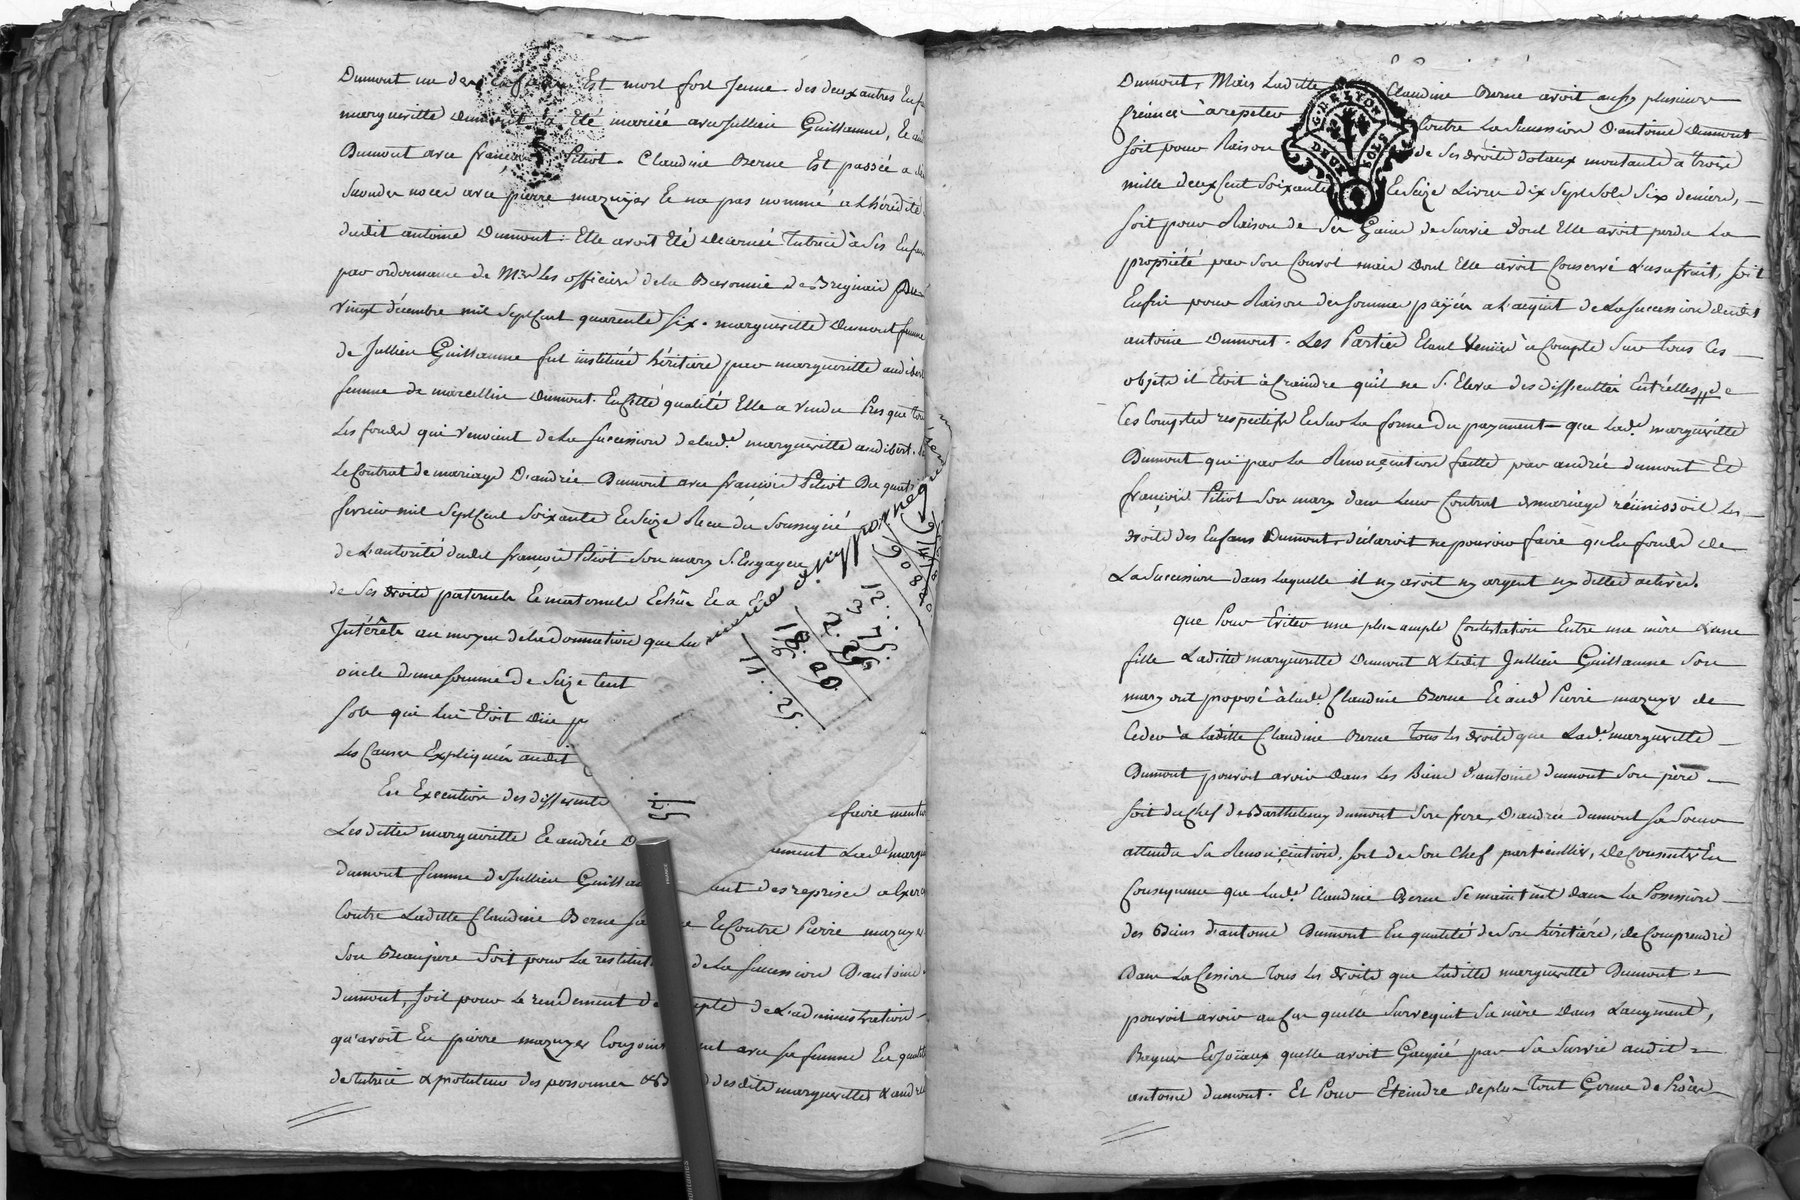 Dumont un des Est mort fort Jeune. des deux autres Enfa
margueritte Dumont a Eté mariée avec Jullien Guillaume, Et an
Dumont avec françois Pitiot. Claudine Berne Est passée a de
Secondes noces avec pierre mazuyer Et na pas nommé a L'hérédité
dudit antoine Dumont. Elle avoit Eté decernée Tutrice à Ses Enfans
par ordonnance de Mrs Les officiers de la Baronnie de Brignais du
vingt décembre mil Sept Cent quarente Six. margueritte Dumont femme
de Jullien Guillaume fut instituée héritiere par margueritte audibert
femme de marcellin Dumont. En Cette qualité Elle a vendu Presque tou
Les fonds qui venoient de La Succession de lade. margueritte audibert.
Le Contrat de mariage D'andrée Dumont avec françois Pitiot Du quat
fevrier mil Sept Cent Soixante Et Seize Recu du Soussigné
de L'autorité dudit françois Pitiot Son mary S. Engagea
de Ses droits paternels Et maternels Echûs Et a E
Intérêts au moyen de la donnation que lui
oncle d'une Somme de Seize Cent
Sols qui lui Etoit düe p
Les Causes Expliquées audit C
En Execution des differents faire mentio
Lesdittes margueritte Et andrée D ement Lade margu
dumont femme de Jullien Guillau ant des reprises a Exer
Contre Laditte Claudine Berne Sa e Et Contre Pierre mazuyer
Son Beaupere Soit pour La restitut de La Succession D'antoine
dumont, Soit pour Le rendement de mpte de L'administration
qu'avoit Eu pierre mazuyer Conjoint ent avec Sa femme En qualité
de tutrice & protuteur des personnes & B desdites margueritte & andrée
12..5
3
G. DE LYON
DEUX SOLS
Dumont, Mais Laditte Claudine Berne avoit aussy plusieurs
Créances à repeter Contre La Succession D'antoine Dumont
Soit pour Raison de Ses droits dotaux montants a trois
mille deux Cent Soixante Et Seize Livres dix Sept Sols Six deniers,
Soit pour Raison de Ses Gains de Survie dont Elle avoit perdu La
propriété par Son Convol mais dont Elle avoit Conservé L'usufruit, Soit
Enfin pour Raison des Sommes payées a L'acquit de La Succession dudit
antoine Dumont. Les Parties Etant Venües à Compte Sur tous Ces
objets il Etoit à Craindre qu'il ne S. Eleva des difficultés Entr'elles de
Ces Comptes respectifs Et Sur La forme du payement que Lade. margueritte
Dumont qui par La Renonciation faitte par andrée dumont Et
françois Pitiot Son mary dans Leur Contrat de mariage réünissoit Les
droits des Enfans Dumont, déclaroit ne pouvoir faire qu'En fonds de
La Succession dans laquelle il ny avoit ny argent ny dettes actives.
que Pour Eviter une plus ample Contestation Entre une mère & une
fille Laditte margueritte Dumont & Ledit Jullien Guillaume Son
mary ont proposé à lade. Claudine Berne Et aud Pierre mazuyer de
Ceder à Laditte Claudine Berne Tous les droits que Lade. margueritte
Dumont pouvoit avoir Dans Les Biens d'antoine dumont Son père
Soit du Chef de Barthelemy dumont Son frere, D'andrée dumont Sa Soeur
attendu Sa Renonciation, Soit de Son Chef particullier, de Consentir En
Consequence que lade. Claudine Berne Se maintint dans La Possession
des Biens d'antoine Dumont En qualité de Son héritiere, de Comprendre
Dans La Cession Tous Les droits que Laditte margueritte Dumont
pouvoit avoir au Cas quelle Survequit Sa mère Dans L'augment,
Bagues Et Joïaux quelle avoit Gagné par Sa Survie audit
antoine dumont. Et Pour Eteindre de plus Tout Germe de Procès